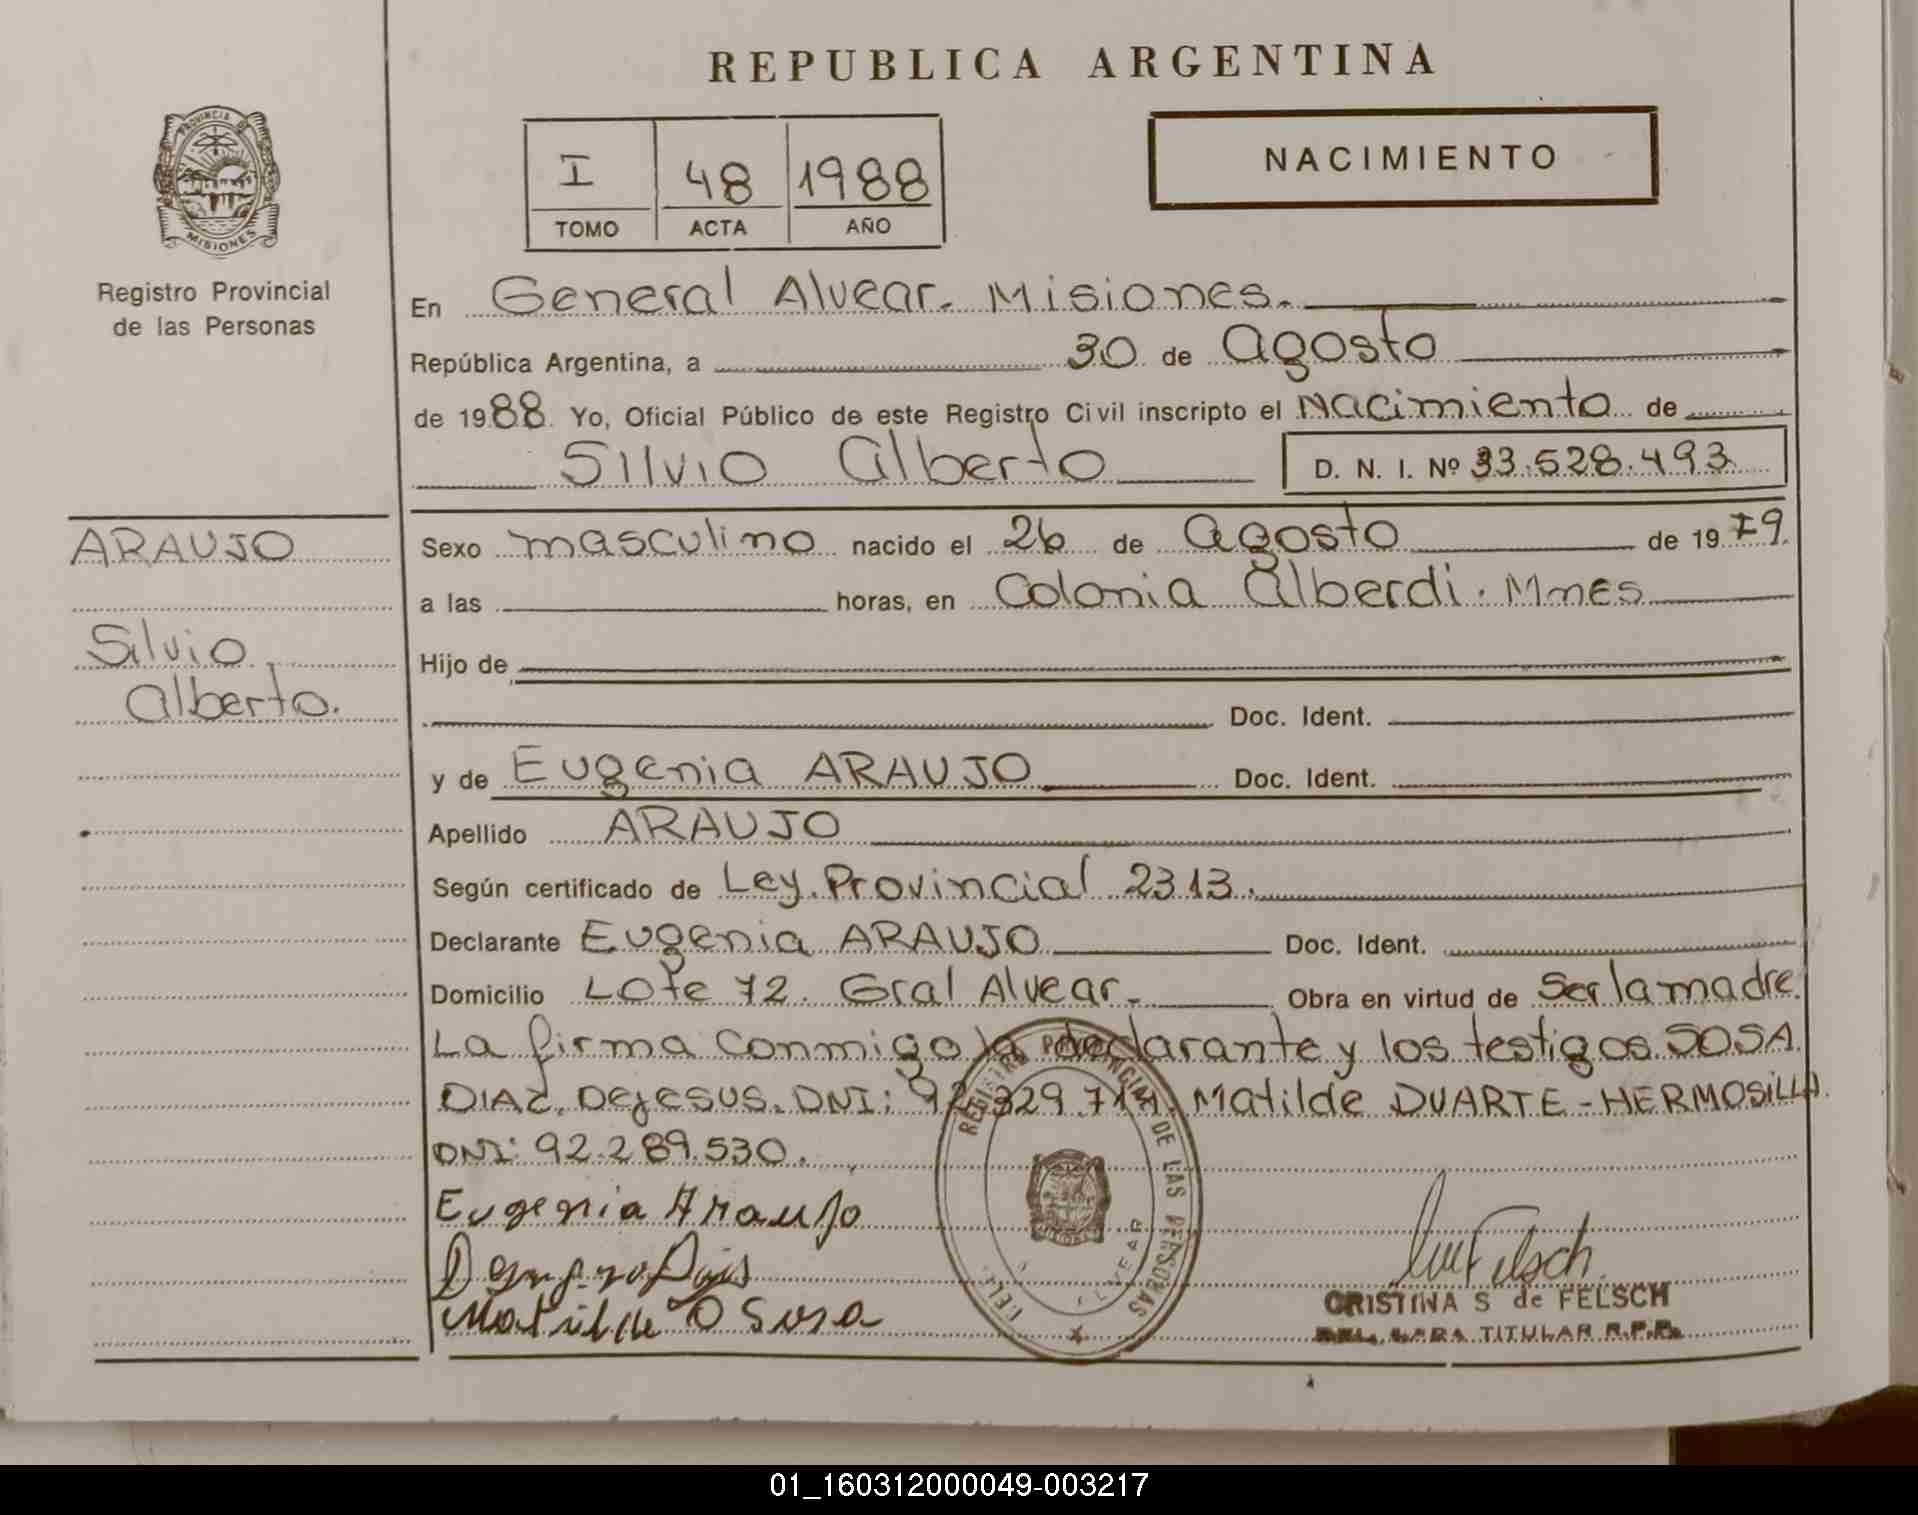 REPUBLICA ARGENTINA
PROVINCIA DE
MISIONES
Registro Provincial
de las Personas
I 48 1988
TOMO ACTA AÑO
NACIMIENTO
En General Alvear. Misiones.
República Argentina, a 30 de Agosto
de 1988 Yo, Oficial Público de este Registro Civil inscripto el Nacimiento de
Silvio Alberto D. N. I. Nº 33.528.493
ARAUJO
Silvio
Alberto.
Sexo masculino nacido el 26 de Agosto de 1979.
a las horas, en Colonia Alberdi. Mnes
Hijo de
Doc. Ident.
y de Eugenia ARAUJO Doc. Ident.
Apellido ARAUJO
Según certificado de Ley Provincial 2313.
Declarante Eugenia ARAUJO Doc. Ident.
Domicilio Lote 72. Gral Alvear. Obra en virtud de Ser la madre.
La firma conmigo la declarante y los testigos SOSA
DIAZ, DEJESUS. DNI: Matilde DUARTE-HERMOSILLA.
DNI: 92.289.530.
Eugenia Araujo
Matilde D Sosa
REGISTRO PROVINCIAL DE LAS PERSONAS
CRISTINA S de FELSCH
TITULAR R.P.P.
01_160312000049-003217